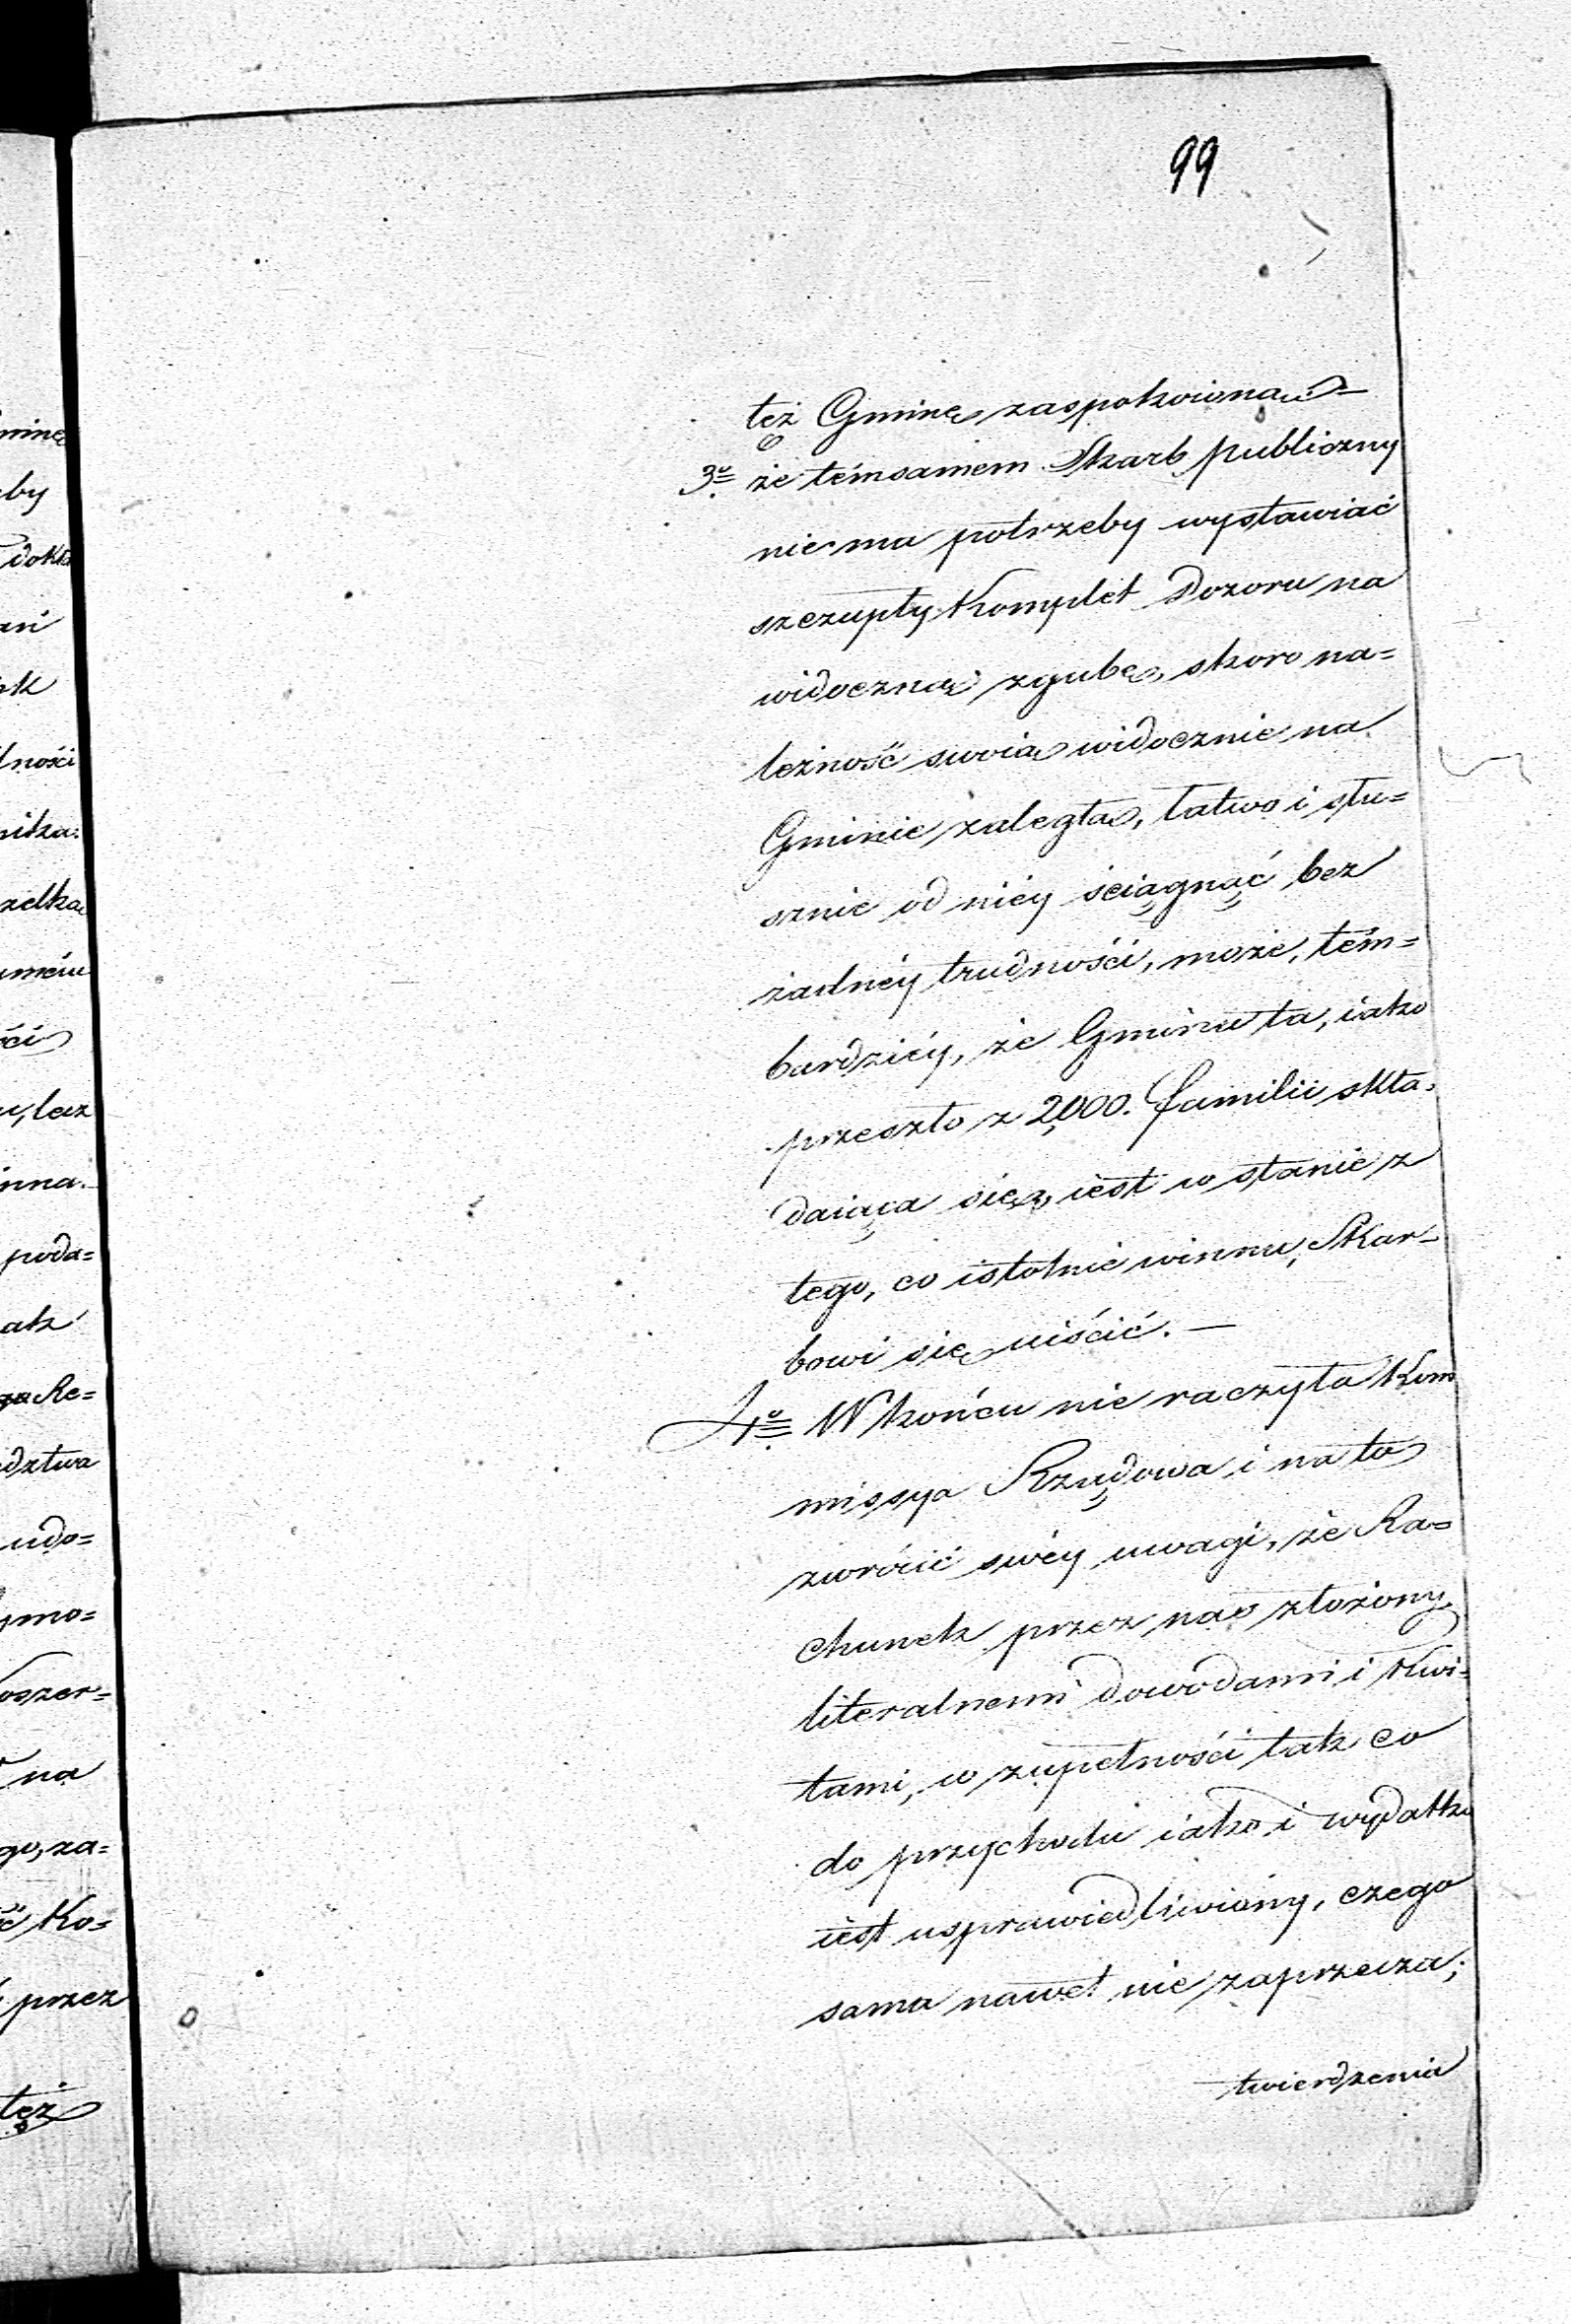 99
tęż Gminę zaspokoioną —
3º że témsamem Skarb publiczny
nie ma potrzeby wystawiać
szczupły Komplet Dozoru na
widoczną zgubę, skoro na=
leżność swoią widocznie na
Gminie zaległą, łatwo i słu=
sznie od niéy ściągnąć bez
żadnéy trudności, może, tém=
bardziéy, że Gmina ta, iako
przeszło z 2,000. familii skła=
daiąca się, iest w stanie z
tego, co istotnie winna, Skar=
bowi się uiścić. —
4º W końcu nie raczyła Kom
missya Rządowa i na to
zwrócić swéy uwagi, że Ra=
chunek przez nas złożony
literalnemi dowodami i Kwi=
tami, w zupełności tak co
do przychodu iako i wydatku
iest usprawiedliwiony, czego
sama nawet nie zaprzecza;
twierdzenia
minę
by
dokła
ań
ak
lności
nika
zelką
umeiu
ści
u, lecz
inna.
poda=
ak
Re=
dztwa
udo=
ymo=
oszer=
na
go, za=
ć Ko=
przez
tęż